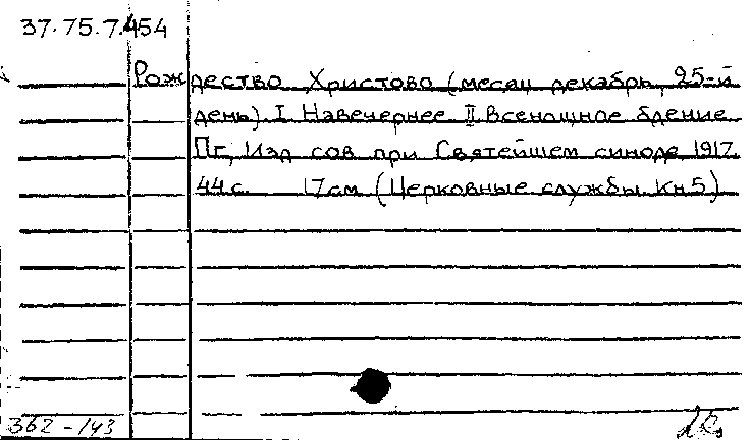 37.75.7.454
Рождество Христово (месяц декабрь, 25-й
день). I Навечернее II Всенощное бдение
Пг, Изд сов при Святейшем синоде 1917.
44 с. 17 см (Церковные службы. Кн 5)
362-143